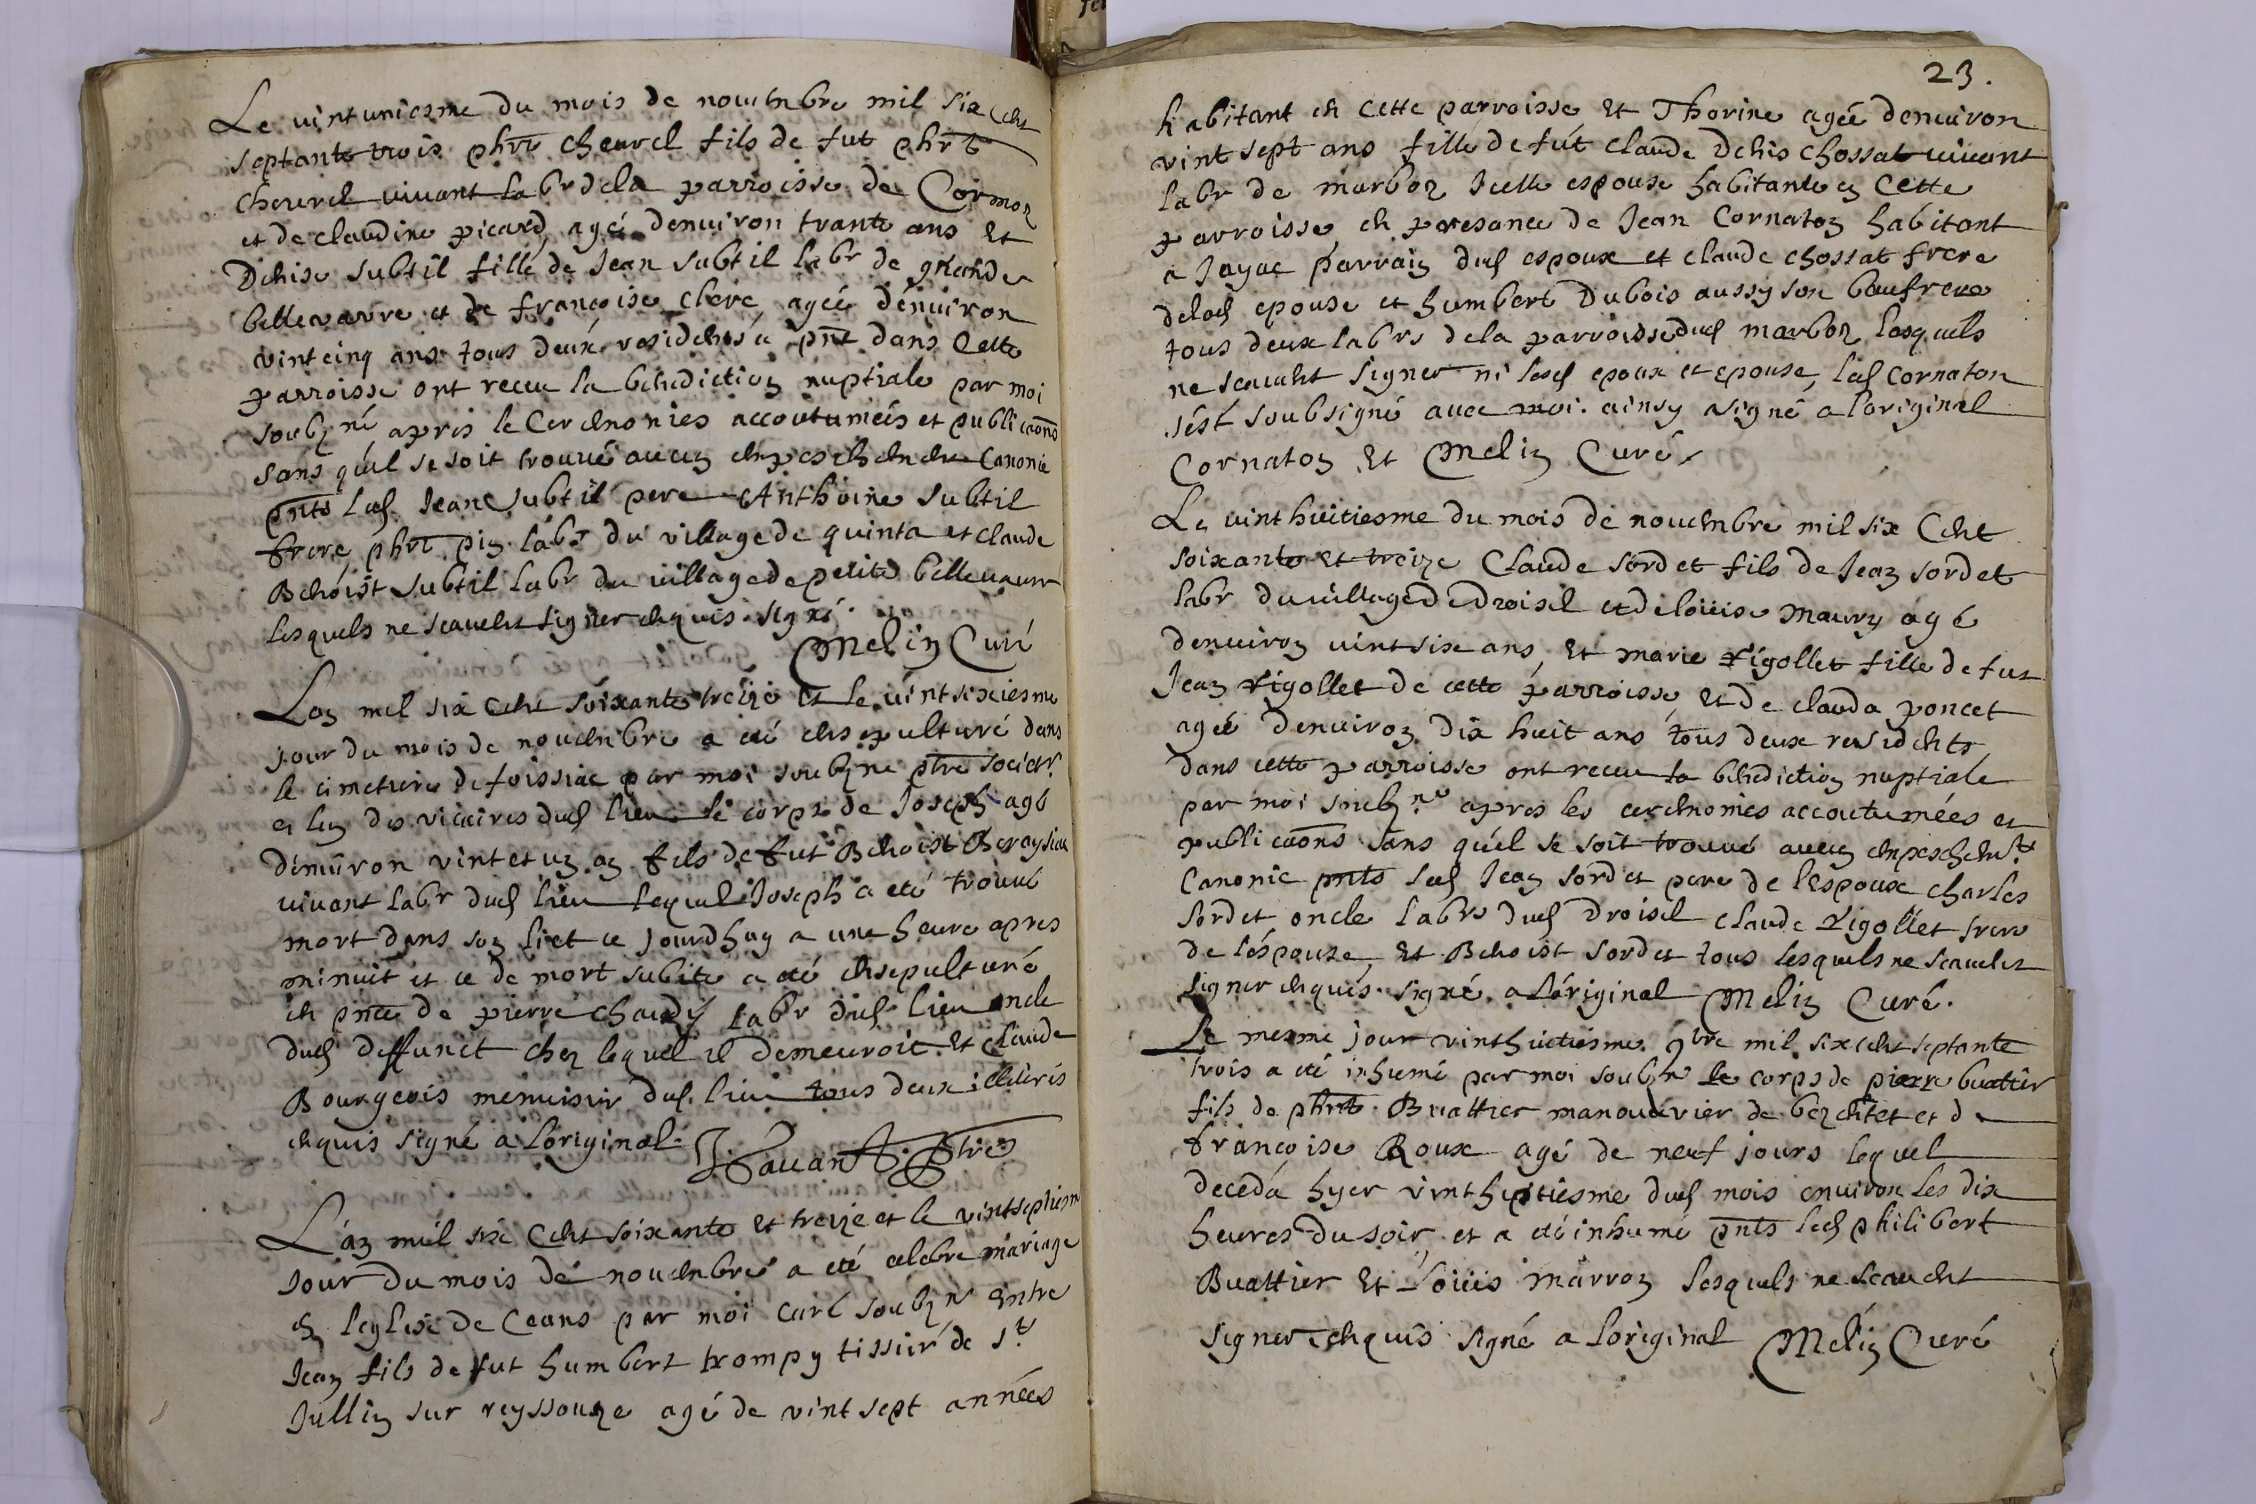 Le vintuniesme du mois de novembre mil six cent
septante trois phrt cheurel fils de fut phrt
cheurel vivant labr dela parroisse de Cormoz
et de claudine picard, agé denviron trante ans Et
Denise subtil fille de Jean subtil labr de grande
bellevavre et de françoise clerc agée denviron
vintcinq ans tous deux residents a pnt dans Cette
parroisse ont receu la benediction nuptiale par moi
soubzné apres le Ceremonies accoutumées et publicaons
sans qu'il se soit trouvé aucun empeschement Canonic
pnts led Jean Subtil pere Anthoine Subtil
frere, phrt pin labr du village de quinta et claude
Benoist subtil labr du village de petite bellevavre
lesquels ne scavent signer enquis. signé
Melin Curé
Lan mil six cent soixante treize et le vintsixiesme
jour du mois de novembre a eté ensepulturé dans
le cimetiere de foissiac par moi soubzne ptre societr
et lun des vicaires dud lieu le corps de Joseph agé
denviron vint et un an fils de fut Benoist
vivant labr dud lieu lequel Joseph a eté trouvé
mort dans son lict ce jourdhuy a une heure apres
minuit et ce de mort subite a eté ensepulturé
en pnce de pierre chandy labr dud lieu oncle
dud deffunct chez lequel il demeuroit Et claude
Bourgeois menuisier dud lieu tous deux illiteris
enquis signé a loriginal. Ptre
Lan mil six Cent soixante Et treize et le vintseptiesme
Jour du mois de novembre a eté celebre mariage
en leglise de Ceans par moi curé soubzné Entre
Jean fils de fut humbert trompy tissier de St
Jullin sur reyssouze agé de vint sept années
23.
habitant en Cette parroisse Et Thorine agée denviron
vint sept ans fille de fut claude Denis chossat vivant
labr de marboz Icelle espouse habitante en Cette
parroisse, en presance de Jean Cornaton habitant
a Jayac parrain dud espoux et claude chossat frere
delad epouse et humbert Dubois aussy son beaufrere
tous deux labrs dela parroisse dud marboz lesquels
ne scavent signer ni lesd epoux et epouse, led Cornaton
s'est soubsigné avec moi. ainsy signé a loriginal
Cornaton Et Melin Curé.
Le vinthuitiesme du mois de novembre mil six Cent
soixante Et treize Claude sordet fils de Jean sordet
labr du village de Droisel et de loüise maury agé
denviron vintsix ans, Et marie rigollet fille de fut
Jean rigollet de cette parroisse, Et de clauda poncet
agée denviron dix huit ans tous deux residents
dans cette parroisse ont receu la benediction nuptiale
par moi soubzné apres les ceremonies accoutumées et
publicaons sans qu'il se soit trouvé aucun empeschemt
Canonic pnts led Jean sordet pere de lespoux charles
sordet oncle labrs dud Droisel claude rigollet frere
de lespouze, Et Benoist sordet tous lesquels ne scavent
signer enquis. signé. a loriginal Melin Curé.
Le mesme jour vinthuictiesme 9bre mil sixcent septante
trois a eté inhumé par moi soubzne le corps de pierre buattier
fils de phrt Buattier manouvrier de et de
françoise Roux agé de neuf jours lequel
deceda hyer vinthuitiesme dud mois environ les dix
heures du soir, et a eté inhumé pnts led philibert
Buattier Et loüis marron lesquels ne scavent
signer enquis signé a loriginal Melin Curé